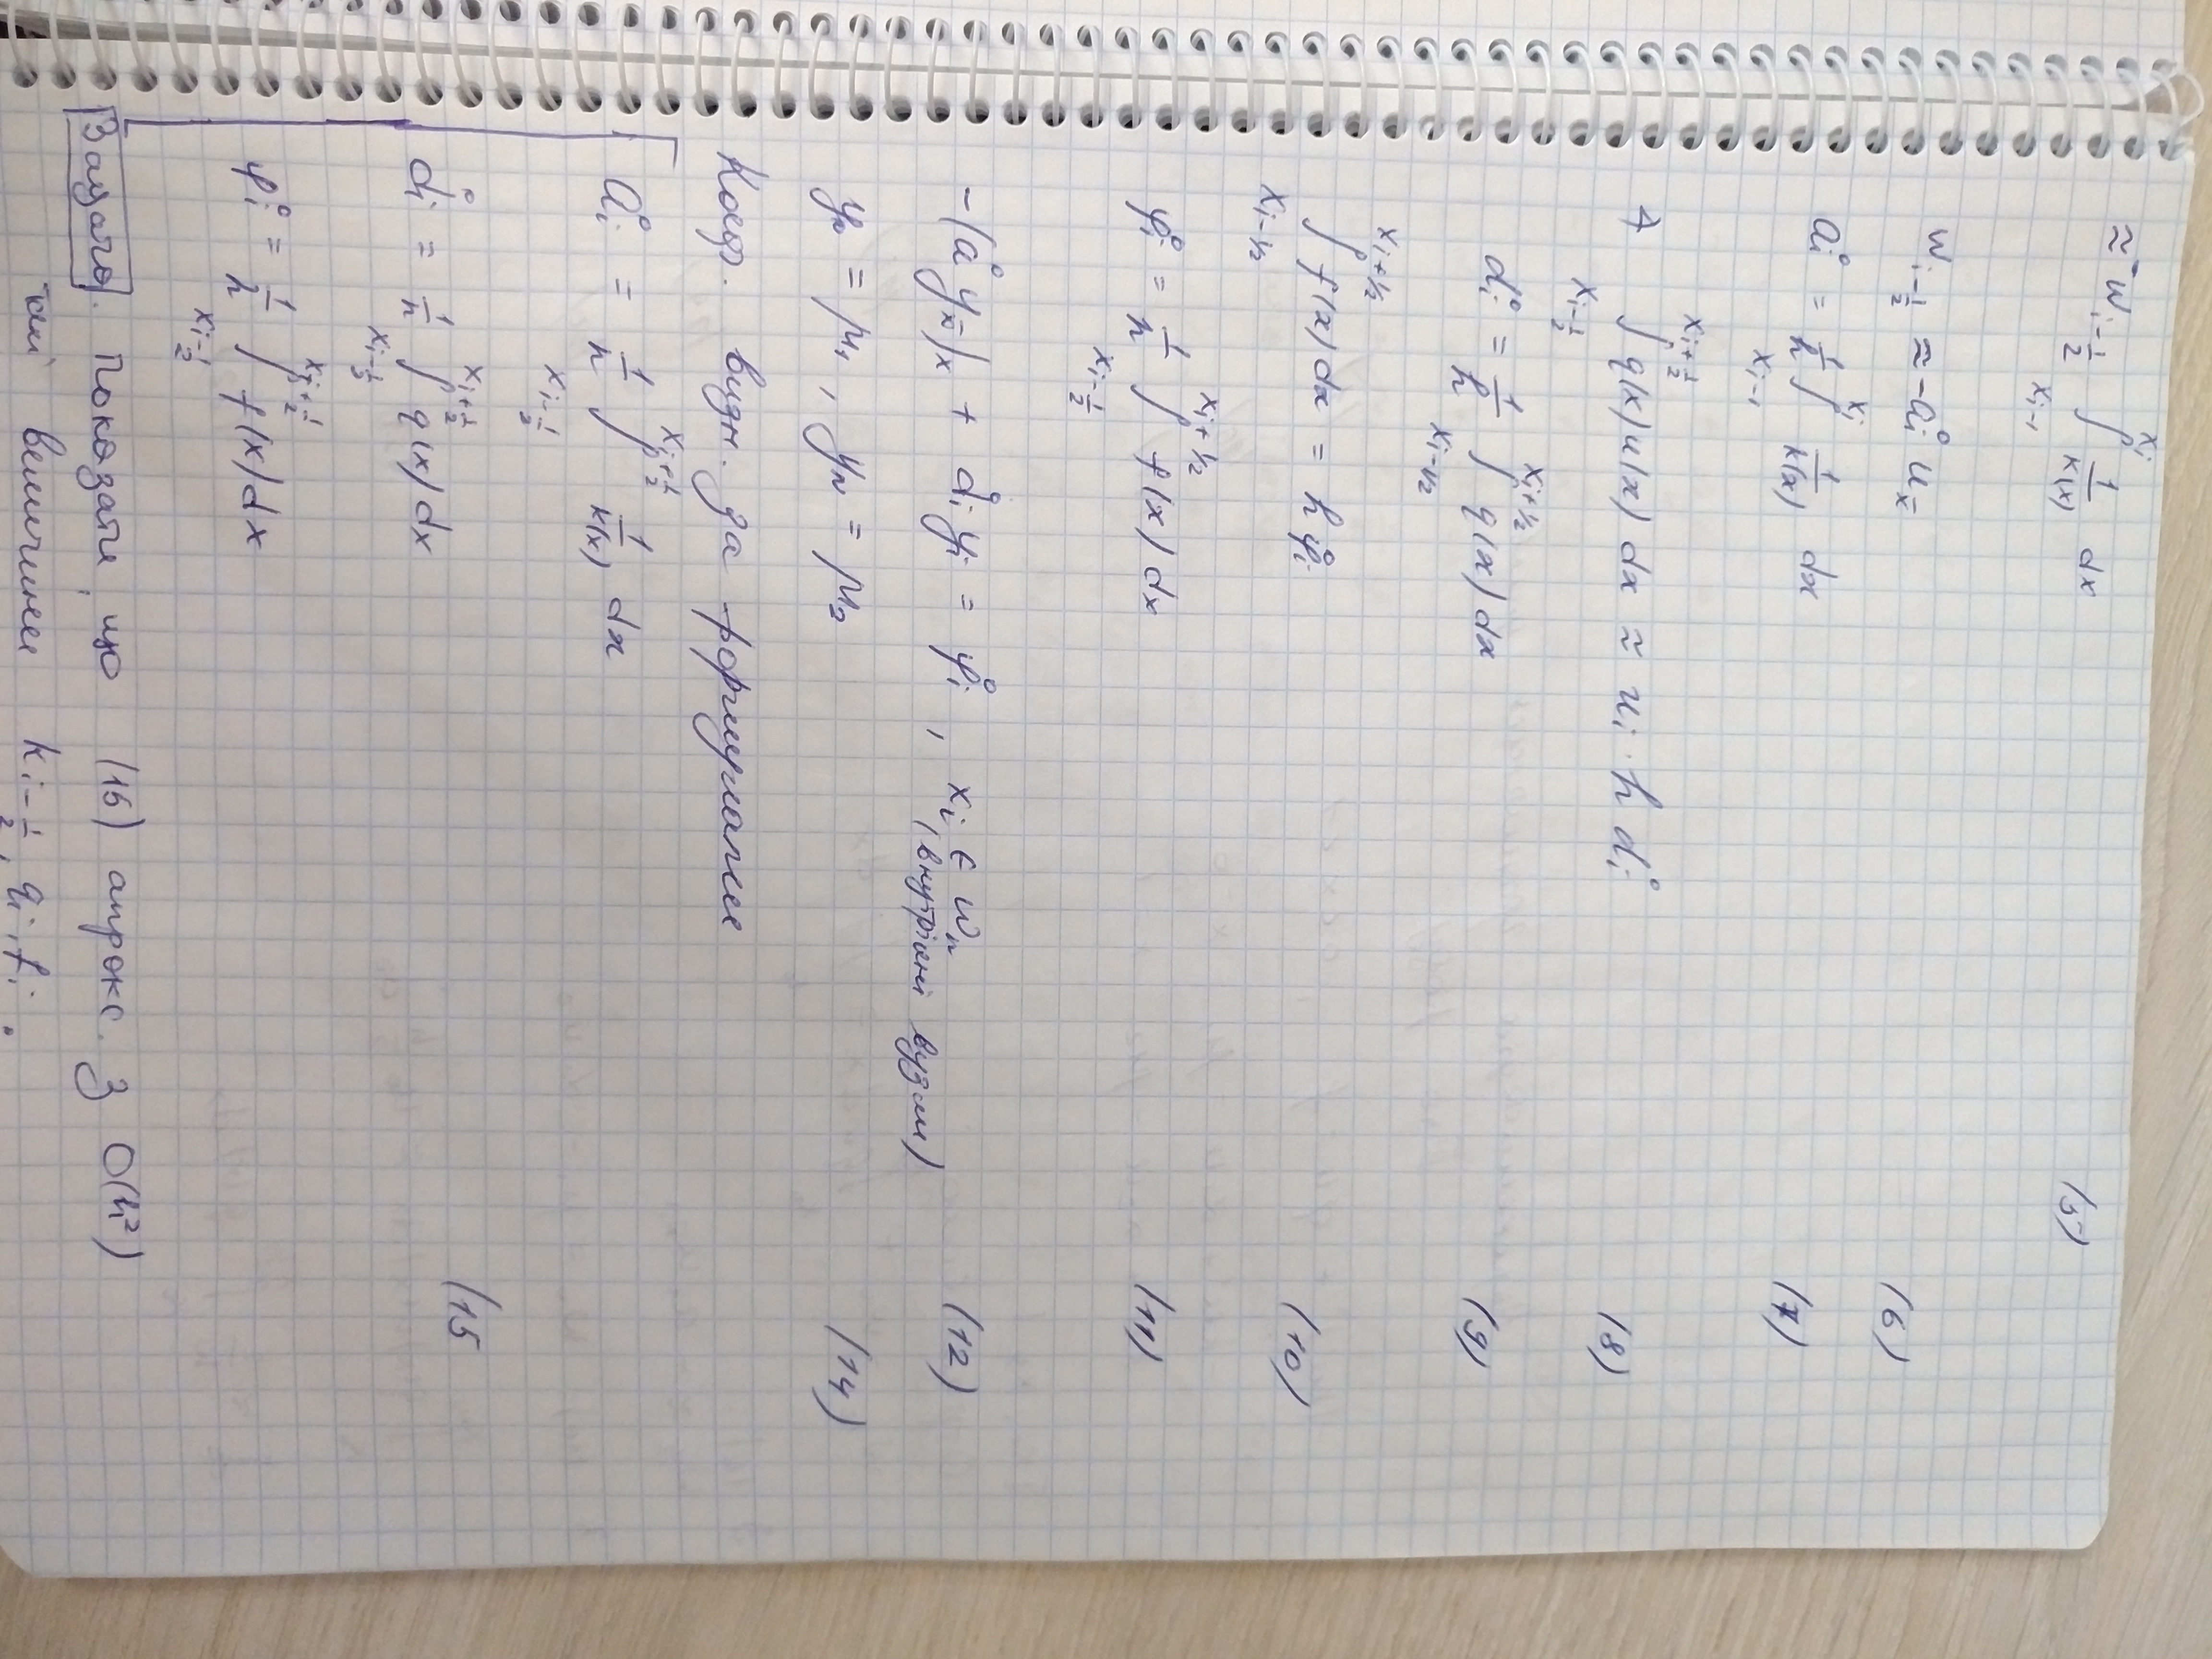 ≈ w_{i-1/2} ∫_{x_{i-1}}^{x_i} 1/k(x) dx (5)
w_{i-1/2} ≈ -a_i° u_x̄ (6)
a_i° = 1/h ∫_{x_{i-1}}^{x_i} 1/k(x) dx (7)
∫_{x_{i-1/2}}^{x_{i+1/2}} q(x) u(x) dx ≈ u_i · h d_i° (8)
d_i° = 1/h ∫_{x_{i-1/2}}^{x_{i+1/2}} q(x) dx (9)
∫_{x_{i-1/2}}^{x_{i+1/2}} f(x) dx = h φ_i° (10)
φ_i° = 1/h ∫_{x_{i-1/2}}^{x_{i+1/2}} f(x) dx (11)
-(a° y_x̄)_x + d_i° y_i = φ_i° , x_i ∈ w_n (12)
(внутрішні вузли)
y_0 = μ_1 , y_N = μ_2 (14)
Коеф. видн. за формулами
a_i° = 1/h ∫_{x_{i-1/2}}^{x_{i+1/2}} 1/k(x) dx
d_i° = 1/h ∫_{x_{i-1/2}}^{x_{i+1/2}} q(x) dx (15
φ_i° = 1/h ∫_{x_{i-1/2}}^{x_{i+1/2}} f(x) dx
Задача. Показати, що (16) апрокс. з O(h²)
такі величини k_{i-1/2}, q_i, f_i.